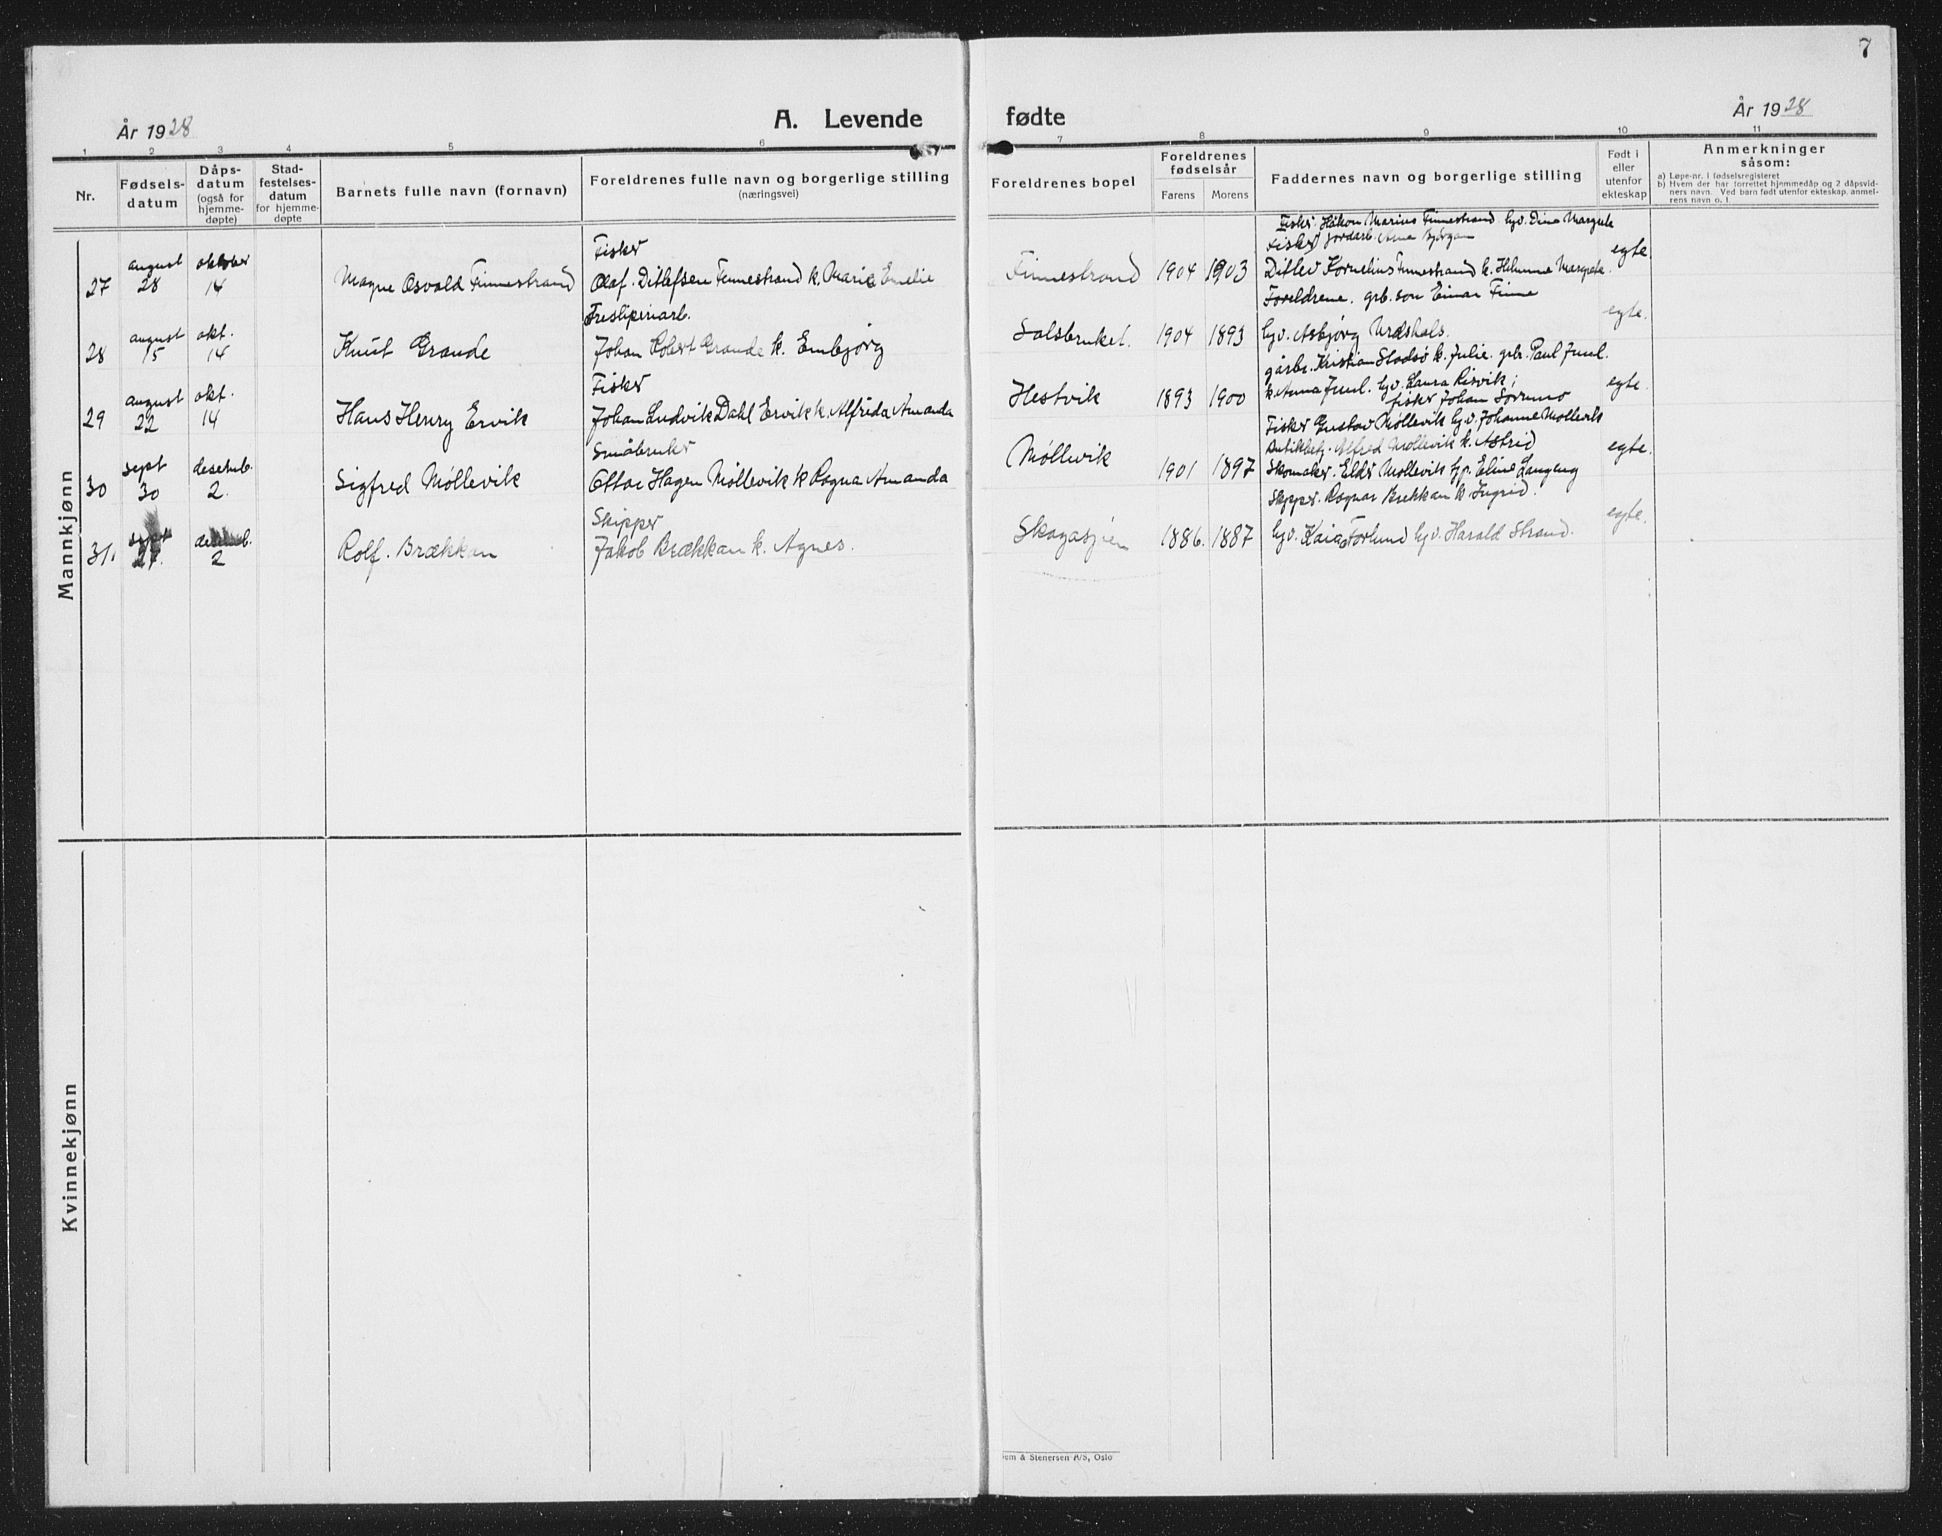 7
År 1928
A. Levende fødte
År 1928
1 2 3 4 5 6 7 8 9 10 11
Nr.
Fødsels-
datum
Dåps-
datum
(også for
hjemme-
døpte)
Stad-
festelses-
datum
for hjemme-
døpte
Barnets fulle navn (fornavn)
Foreldrenes fulle navn og borgerlige stilling
(næringsvei)
Foreldrenes bopel
Foreldrenes
fødselsår
Farens Morens
Faddernes navn og borgerlige stilling
Født i
eller
utenfor
ekteskap
Anmerkninger
såsom:
a) Løpe-nr. i fødselsregisteret
b) Hvem der har forrettet hjemmedåp og 2 dåpsvid-
ners navn. Ved barn født utenfor ekteskap, anmel-
rens navn o. l.
Mannkjønn
27
august
28
oktober
14
Magne Osvald Finnestrand
Fisker
Olaf Ditlefsen Finnestrand k. Marie Emelie
Finnestrand
1904 1903
Fisker Håkon Marius Finnestrand. Ugv. Dina Margrete
Fisker jordarb. Arne Bjørgan
Ditlev Kornelius Finnestrand k. Margrete
egte
28
august
15
okt.
14
Knut Grande
Tresliperiarb.
Johan Robert Grande k. Embjørg
Salsbruket.
1904 1893
Foreldrene. grb. søn Einar Finne
Ugv. Asbjørg Urdshals.
egte.
29
august
22
okt.
14
Hans Henry Ervik
Fisker
Johan Ludvik Dahl Ervik k. Alfrida Amanda
Hestvik
1893 1900
gårbr. Kristian Stadsø k. Julie. grb. Paul Juul.
k. Anna Juul. Ugv. Laura Risvik;
fisker Johan
egte.
30
sept
30
desemb.
2.
Sigfred Møllevik
Småbruker
Ottar Hagen Møllevik k. Ragna Amanda
Møllevik
1901 1897
Fisker Gustav Møllevik Ugv. Johanne Møllevik
Butikbetj. Alfred Møllevik k. Astrid
Skomaker. Møllevik Eline Langeng
egte.
31.
sept
desemb.
2
Rolf. Brækkan
Skipper
Jakob Brækkan k. Agnes.
Skagasjøen
1886. 1887
Skipper. Ragnar Brekkan k. Ingrid.
Ugv. Kaia Forlund Ugv. Harald Strand.
egte.
Kvinnekjønn
em & Stenersen A/S, Oslo